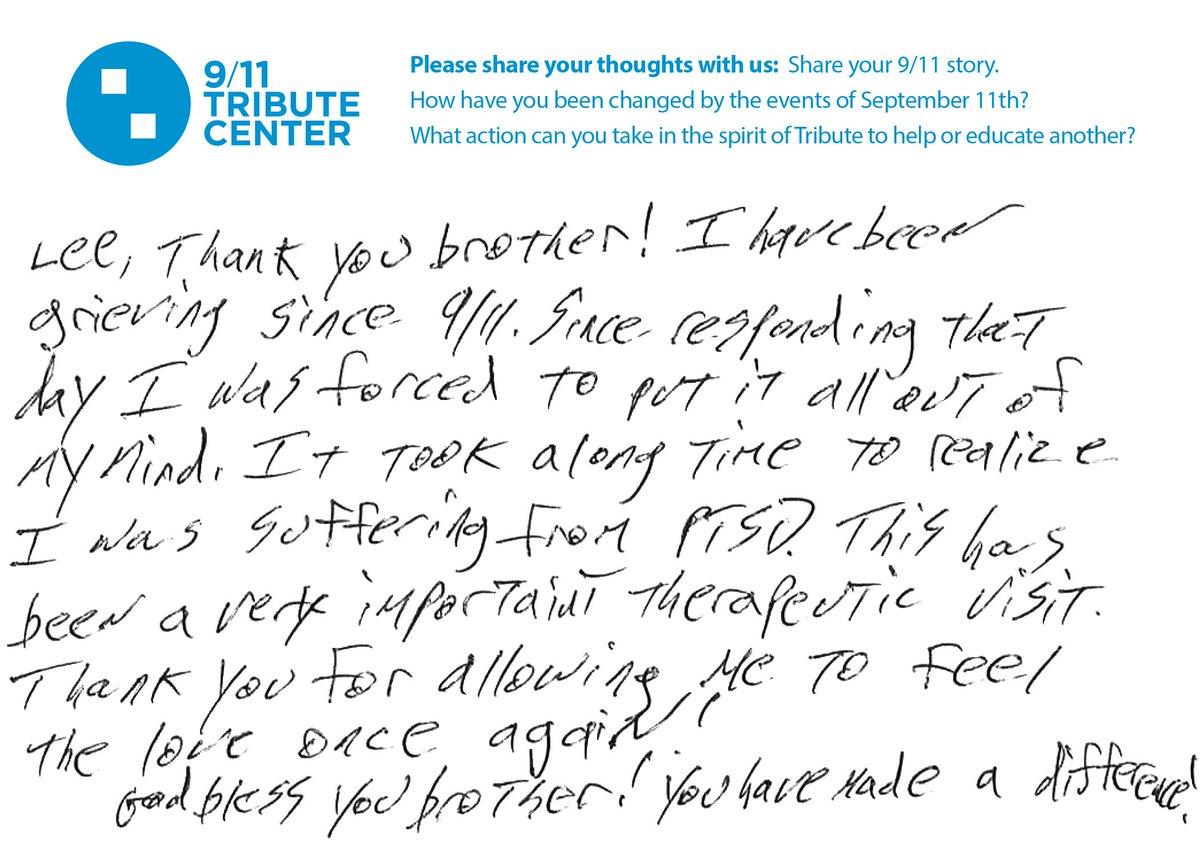 9/11
TRIBUTE
CENTER
Please share your thoughts with us: Share your 9/11 story.
How have you been changed by the events of September 11th?
What action can you take in the spirit of Tribute to help or educate another?
Lee, Thank you brother! I have been
grieving since 9/11. Since responding that
day I was forced to put it all out of
my mind. It took along time to realize
I was suffering from PTSD. This has
been a very importaint therapeutic visit.
Thank you for allowing me to feel
the love once again!
God bless you brother! You have made a difference!